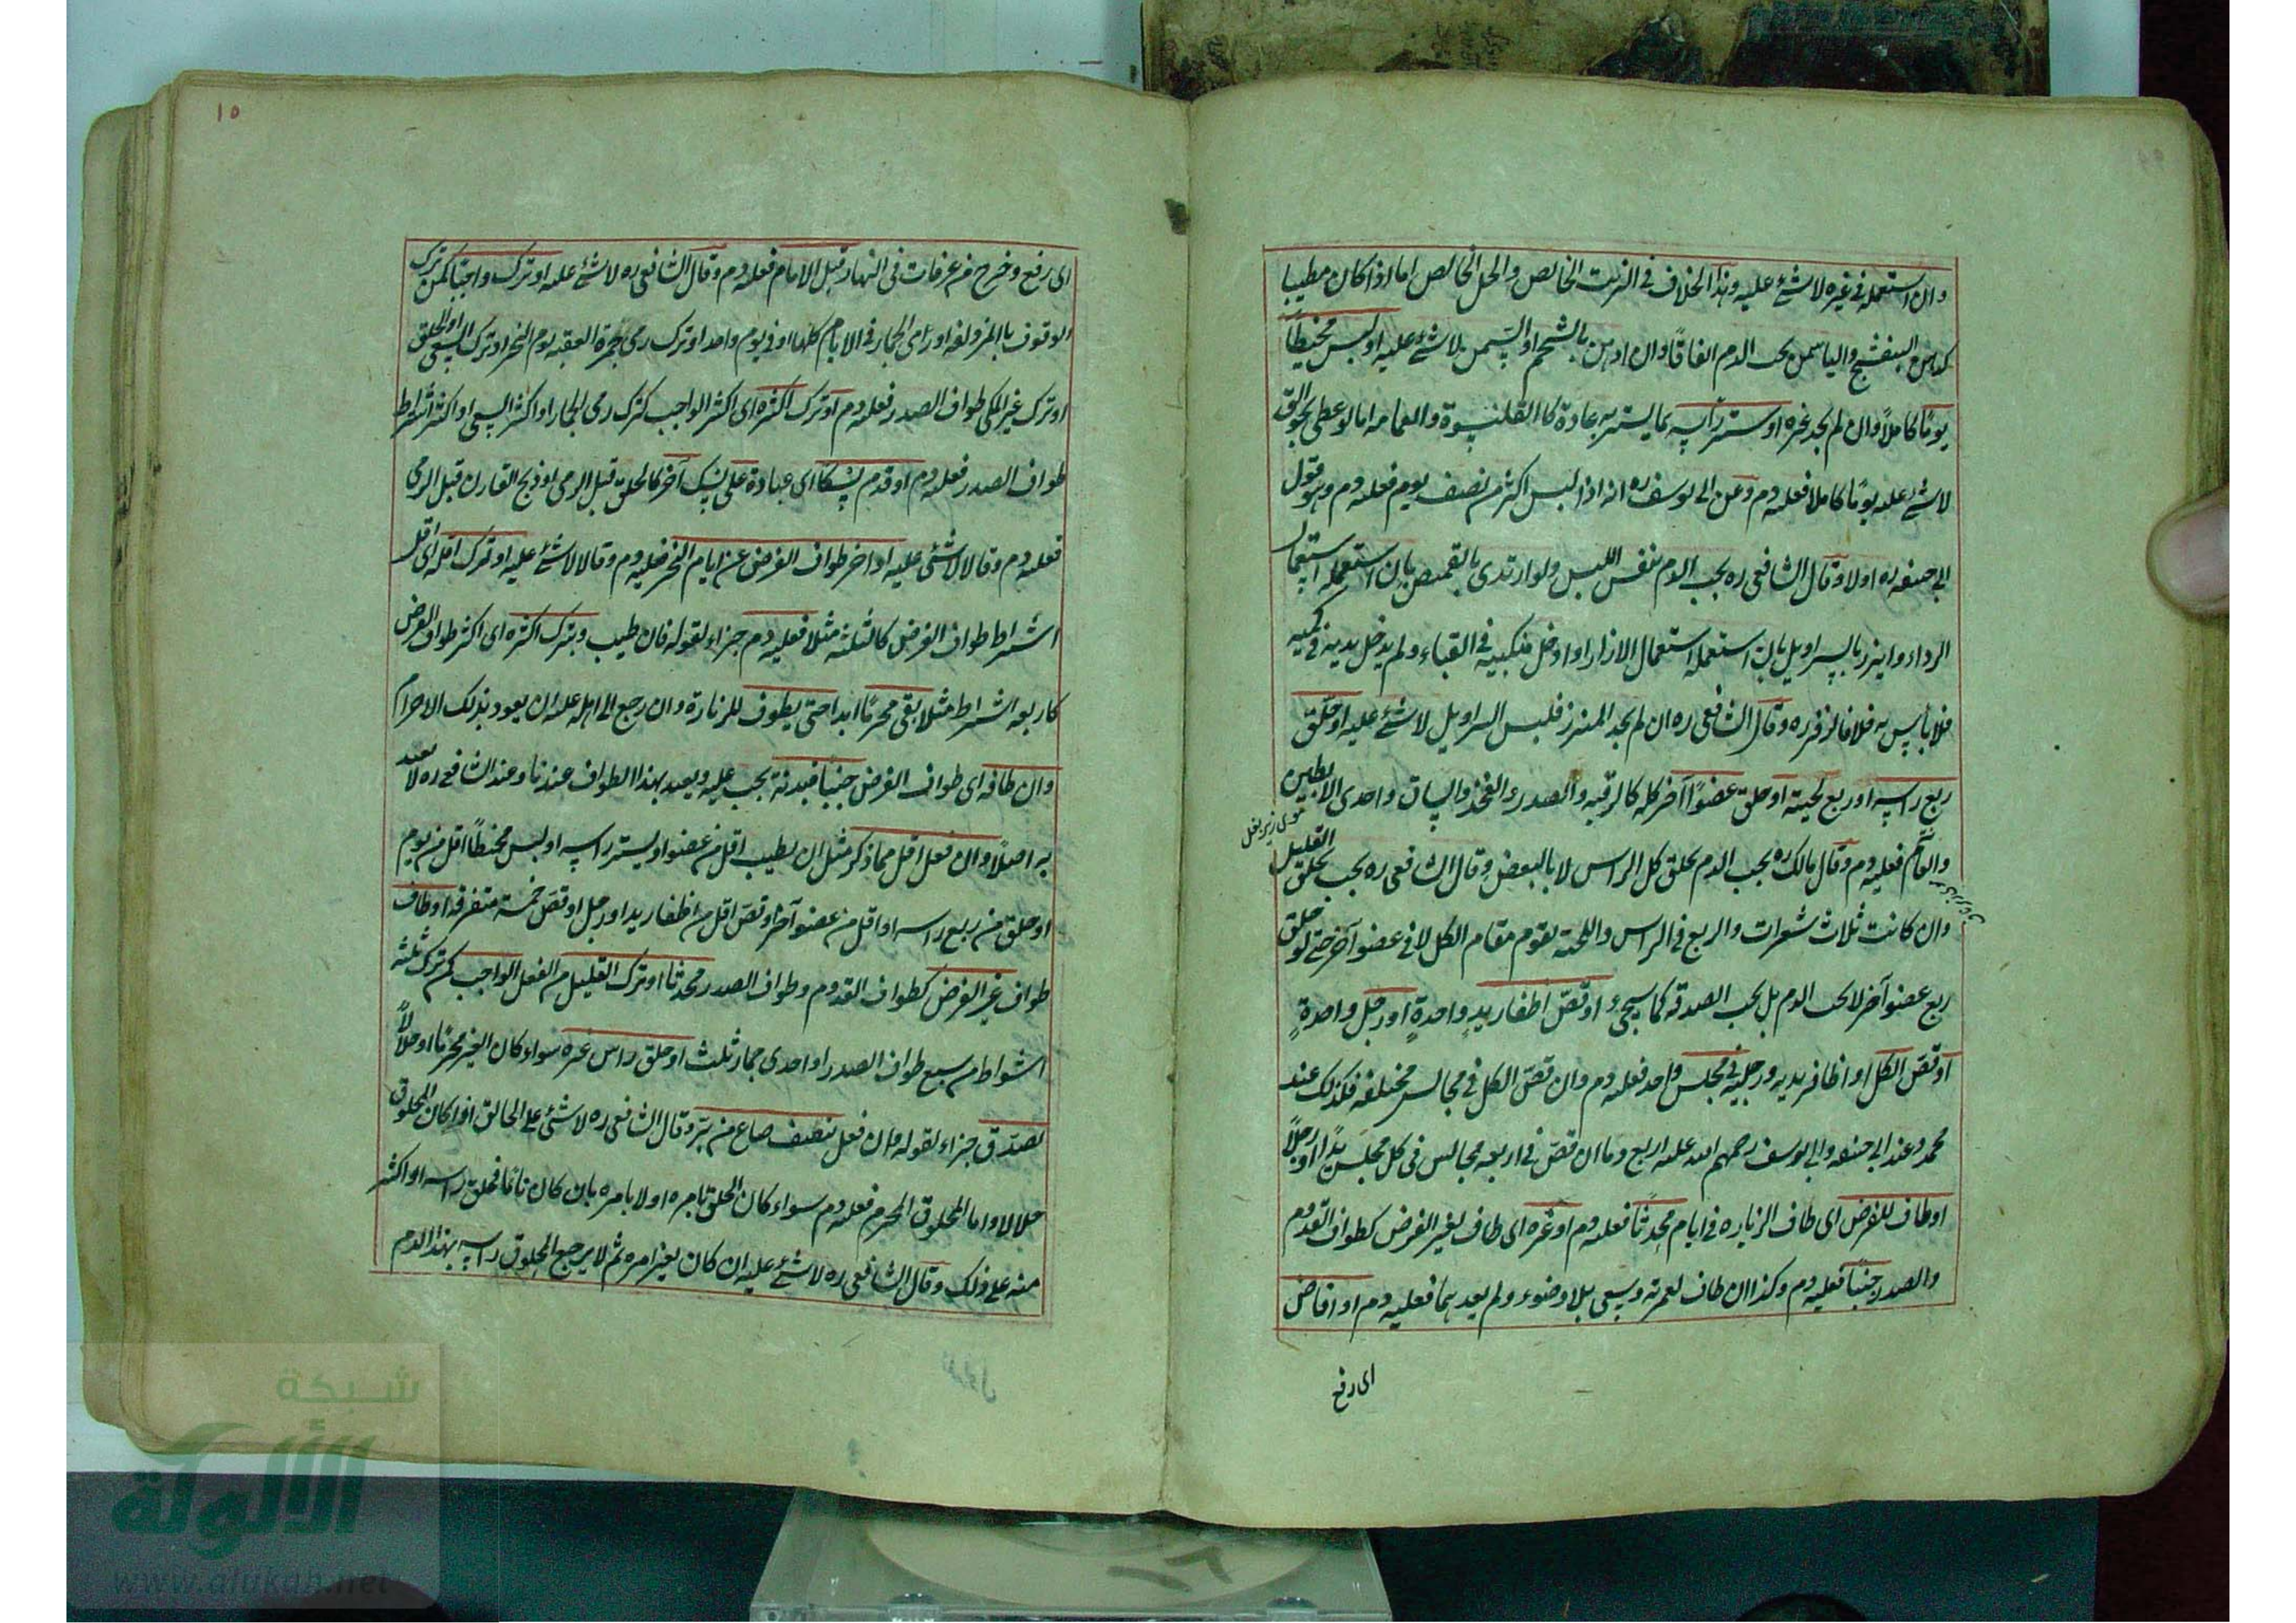 وان استعمله في غيره لا شئ عليه وهذا الخلاف في الزيت الخالص والحل الخالص اما اذا كان مطيبا
كدهن البنفشج والياسمن يجب الدم اتفاقًا وان ادهن بالشحم او السمن فلا شئ عليه او لبس مخيطًا
يومًا كاملاً وان لم يجد غيره او ستر راسه بما يستر به عادة كالقلنسوة والعمامه اما لو غطى بجوالق
لا شئ عليه يومًا كاملا فعليه دم وعن ابى يوسف ره انه اذا لبس اكثر من نصف يوم فعليه دم وهو قول
ابى حنيفه ره اولا وقال الشافعى ره يجب الدم بنفس اللبس ولو ارتدى بالقميص بان استعمله استعمال
الرداء واتزر بالسراويل بان استعمله استعمال الازار او ادخل منكبيه في القباء ولم يدخل يديه في كميه
فلا باس به خلافا لزفر ره وقال الشافعى ره ان لم يجد الميزر فلبس السراويل لا شئ عليه او حلق
ربع راسه او ربع لحيته او حلق عضوًا آخر كله كالرقبه والصدر والفخذ والساق واحدى الابطين
موى زير بغل
والعانة فعليه دم وقال مالك ره يجب الدم بحلق كل الراس لا بالبعض وقال الشافعى ره يجب بحلق القليل
وان كانت ثلاث شعرات والربع في الراس واللحية يقوم مقام الكل لا في عضو آخر حتى لو حلق
ربع عضو آخر لا يجب الدم بل يجب الصدقه كما سيجئ او قصّ اظفار يدٍ واحدةٍ او رجل واحدةٍ
او قصّ الكل او اظافر يديه ورجليه في مجلس واحد فعليه دم وان قصّ الكل في مجالس مختلفه فكذلك عند
محمد وعند ابى حنيفه وابى يوسف رحمهم الله عليه اربع دما ان قصّ في اربعه مجالس في كل مجلس يدًا او رجلاً
او طاف للفرض اى طاف الزياره في ايام محدثًا فعليه دم او غيره اى طاف لغير الفرض كطواف القدوم
والصدر جنبًا فعليه دم وكذا ان طاف لعمرته وسعى بلا وضوء ولم يعدهما فعليه دم او افاض
اى دفع
١٥
اى دفع وخرج من عرفات فى النهار قبل الامام فعليه دم وقال الشافعى ره لا شئ عليه او ترك واجبًا كمن ترك
الوقوف بالمزدلفه او رمى الجمار في الايام كلها او في يوم واحد او ترك رمى جمرة العقبه يوم النحر او ترك السعى او الحلق
او ترك غير المكى طواف الصدر فعليه دم او ترك اكثره اى اكثر الواجب كترك رمى الجمار او اكثر السعى او اكثر اشراط
طواف الصدر فعليه دم او قدم نسكا اى عبادة على نسك آخر كالحلق قبل الرمى او ذبح القارن قبل الرمى
فعليه دم وقالا لا شئ عليه او اخر طواف الفرض عن ايام النحر فعليه دم وقالا لا شئ عليه او ترك اقله اى اقل
اشراط طواف الفرض كالثلثه مثلا فعليه دم جزاء لقوله فان طيب وبترك اكثره اى اكثر طواف الفرض
كاربعه اشراط مثلا بقى محرمًا ابدا حتى يطوف للزيارة وان رجع الى اهله عليه ان يعود بذلك الاحرام
وان طافه اى طواف الفرض جنبًا فبدنة يجب عليه ويعيد بهذا الطواف عندنا وعند الشافعى ره لا يعيد
به اصلًا وان فعل اقل مما ذكر مثل ان يطيب اقل من عضو او يستر راسه او لبس مخيطًا اقل من يوم
او حلق من ربع راسه او اقل من عضو آخر او قصّ اقل من اظفار يد او رجل او قصّ خمسة متفرقه او طاف
طواف غير الفرض كطواف القدوم وطواف الصدر محدثا او ترك القليل من الفعل الواجب كمن ترك ثلثه
اشواط من سبع طواف الصدر او احدى جمار ثلث او حلق راس غيره سواء كان الغير محرمًا او حلالًا
تصدّق جزاء لقوله وان فعل بنصف صاع من بُرّ وقال الشافعى ره لا شئ على الحالق اذا كان المحلوق
حلالا واما المحلوق المحرم فعليه دم سواء كان الحلق بامره او لا بامره بان كان نائما فحلق راسه او اكثر
منه على ذلك وقال الشافعى ره لا شئ عليه ان كان بغير امره ثم لا يرجع المحلوق راسه بهذا الدم
شبكة
الألوكة
www.alukah.net